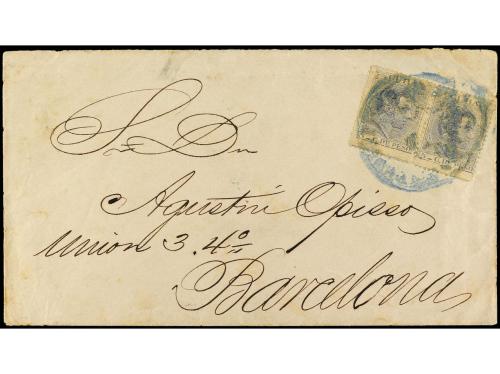 Sr. Dn.
Agustin Opisso
Union 3. 4º
Barcelona